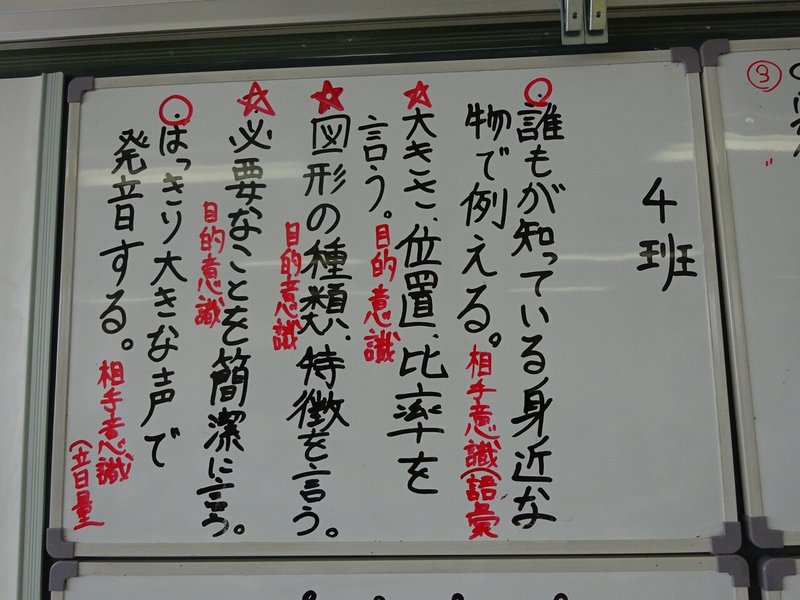 4班
・誰もが知っている身近な
物で例える。相手意識(語彙)
・大きさ、位置、比率を
言う。目的意識
・図形の種類、特徴を言う。
目的意識
・必要なことを簡潔に言う。
目的意識
・はっきり大きな声で
発音する。相手意識
(音量)
③